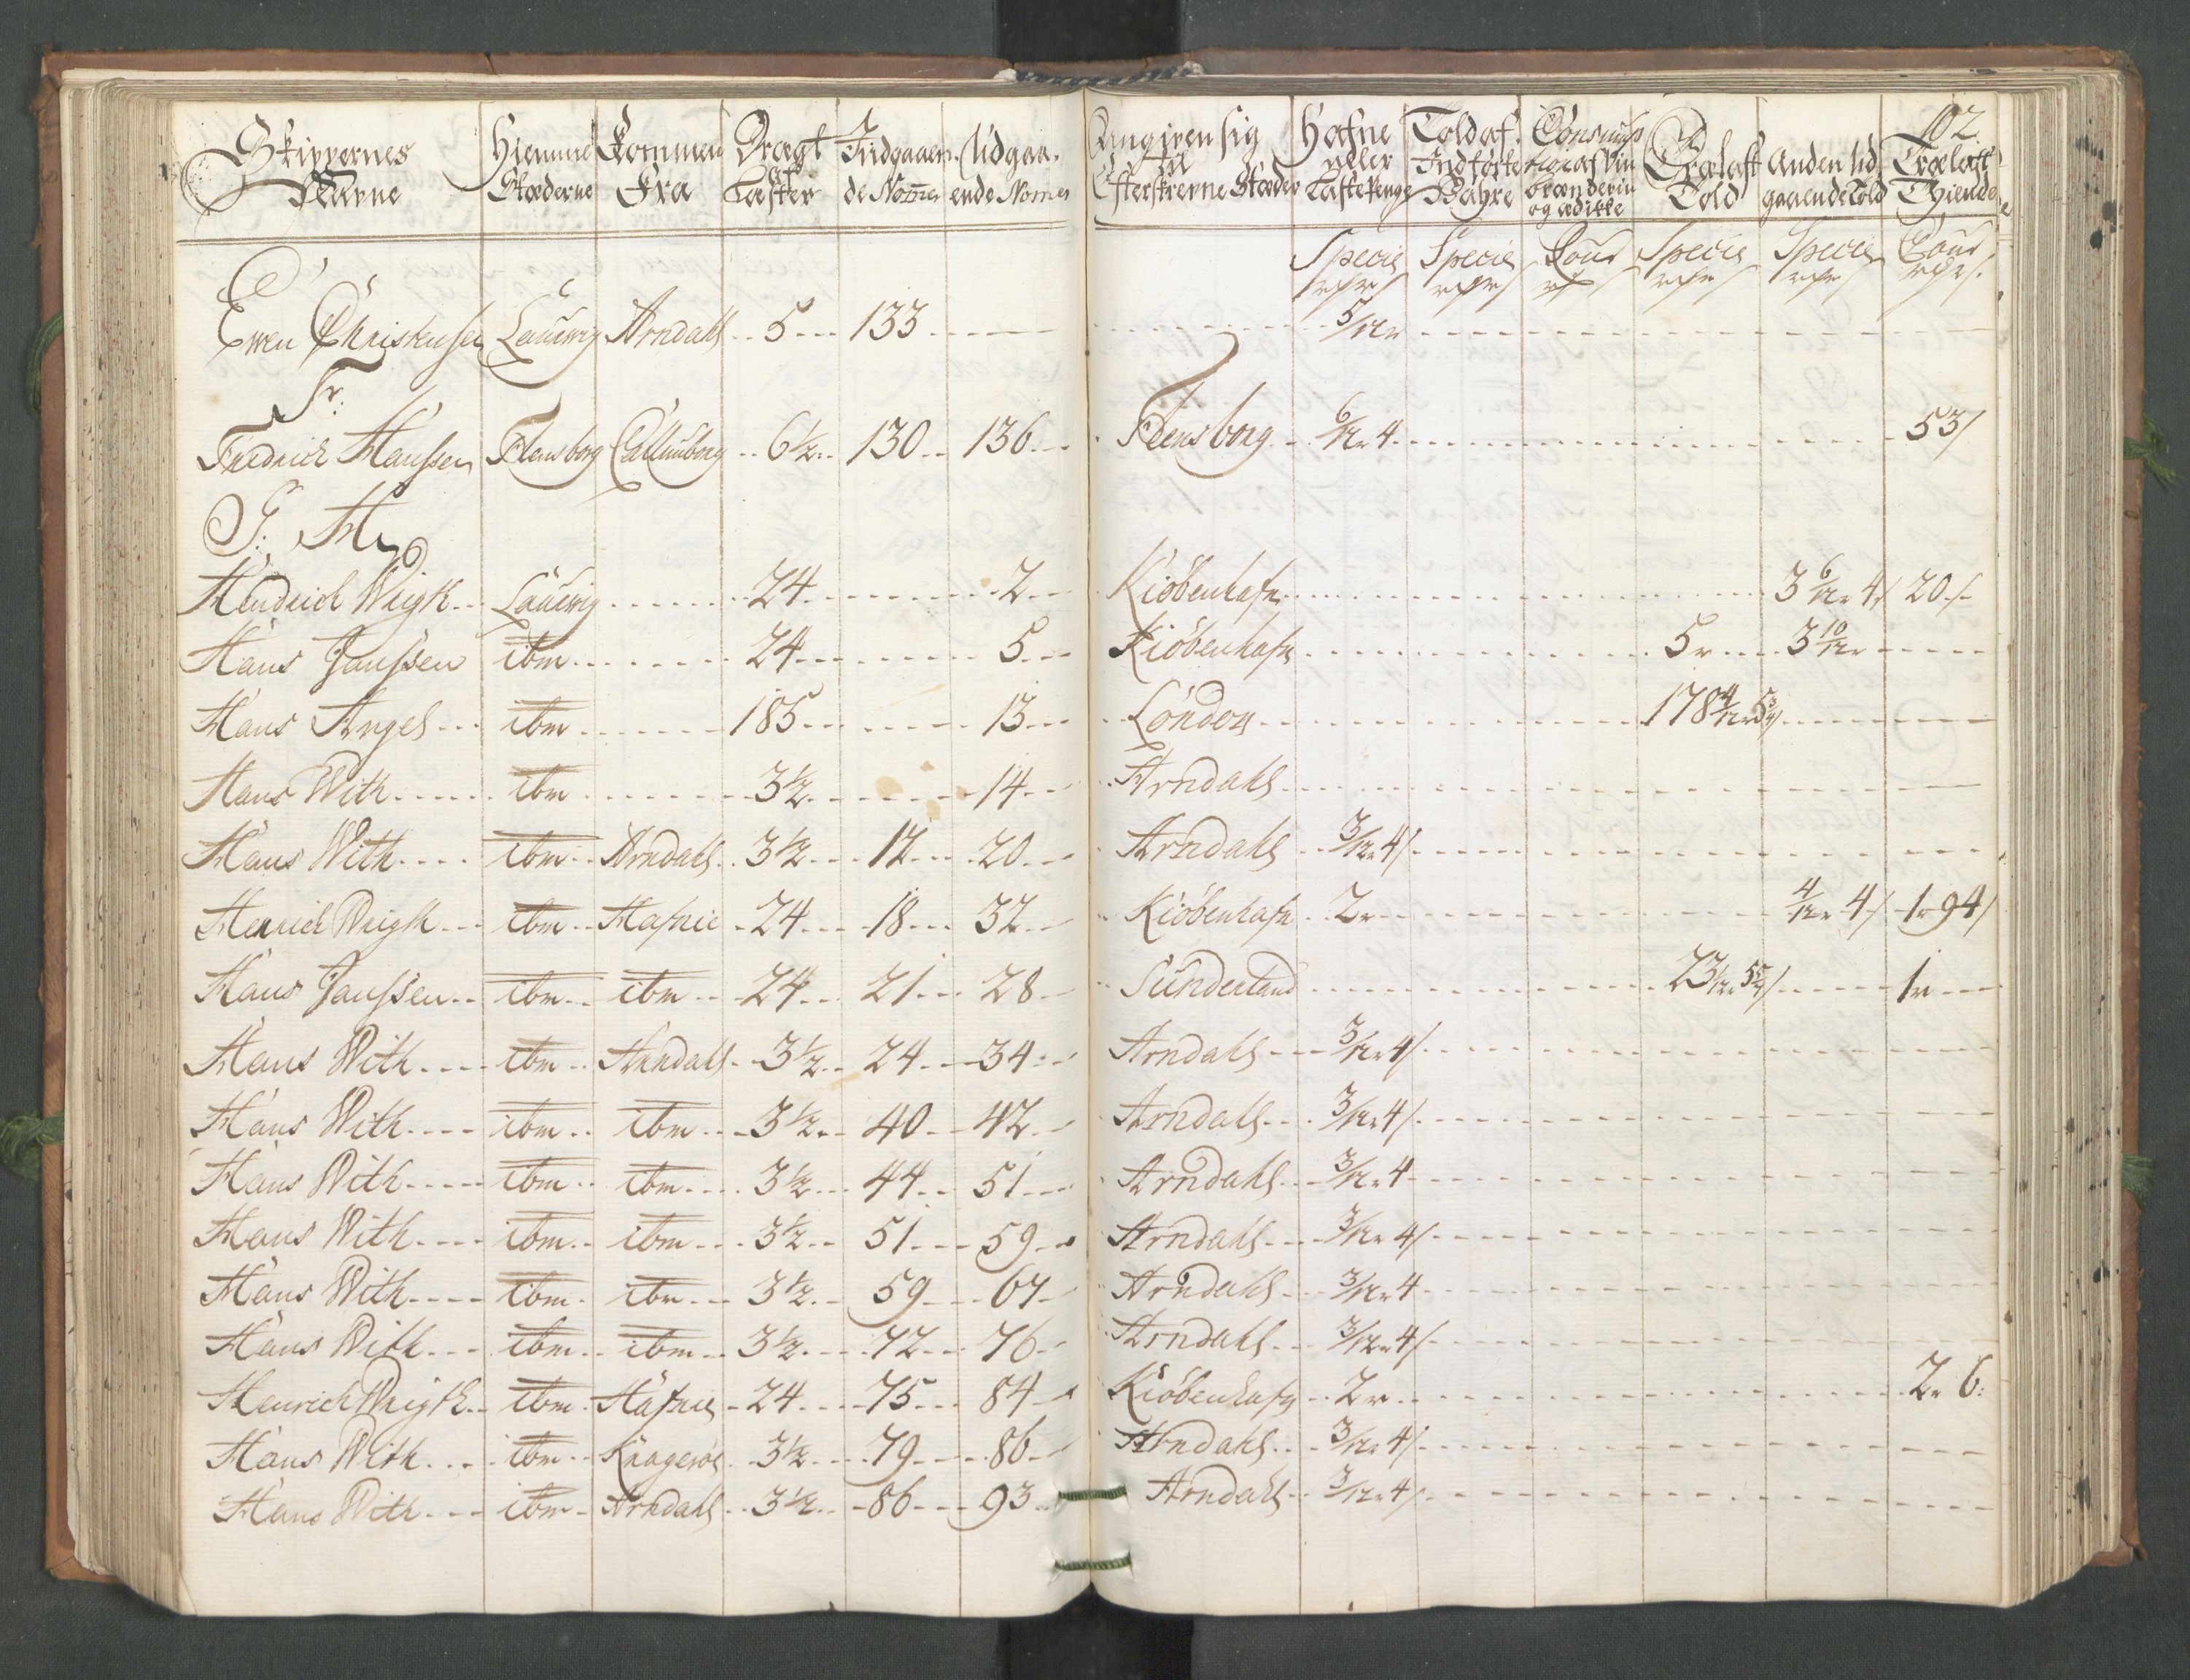 102
Skippernes Nafne | Hiemme Stæderne | Kommen Fra | Drægt Læster | Indgaaende Nomer | Udgaaende Nomer | Angiven sig til Efterskrevne Stæder | Hafne eller Lastepenge | Told af Indførte Wahre | Consumption af Vin brændeviin og ædikke | Trælast Told | Anden Udgaaende Told | Trælast Tiende
Specie | Specie | Cour | Specie | Specie | Cour
E
Ewen Christensen Laurvig Arndahl 5 133 5/12
Fr:
Fredrich Hanssen Flensborg Callunborg 6½ 130 136 Flensborg 6/12 4 53/
G: H
Hendrich Wrigh Laurvig 24 2 Kiöbenhafn 3 6/12 4/ 20/
Hans Janssen ibm 24 5 Kiöbenhafn 5 3 10/12
Hans Angel ibm 185 13 London 178 4/12 5¾/
Hans With ibm 3½ 14 Arndahl
Hans With ibm Arndahl 3½ 12 20 Arndahl 3/12 4/
Henrich Wrigh ibm Hafnie 24 18 32 Kiöbenhafn 2 4/12 4/ 1 94/
Hans Janssen ibm ibm 24 21 28 Sunderland 23 1
Hans With ibm Arndahl 3½ 24 34 Arndahl 3/12 4/
Hans With ibm ibm 3½ 40 42 Arndahl 3/12 4/
Hans With ibm ibm 3½ 44 51 Arndahl 3/12 4
Hans With ibm ibm 3½ 51 59 Arndahl 3/12 4/
Hans With ibm ibm 3½ 59 67 Arndahl 3/12 4
Hans With ibm ibm 3½ 72 76 Arndahl 3/12 4/
Henrich Wrigh ibm Hafnie 24 75 84 Kiöbenhafn 2 2 6
Hans With ibm Kragerøe 3½ 79 86 Arndahl 3/12 4/
Hans With ibm Arndahl 3½ 86 93 Arndahl 3/12 4/